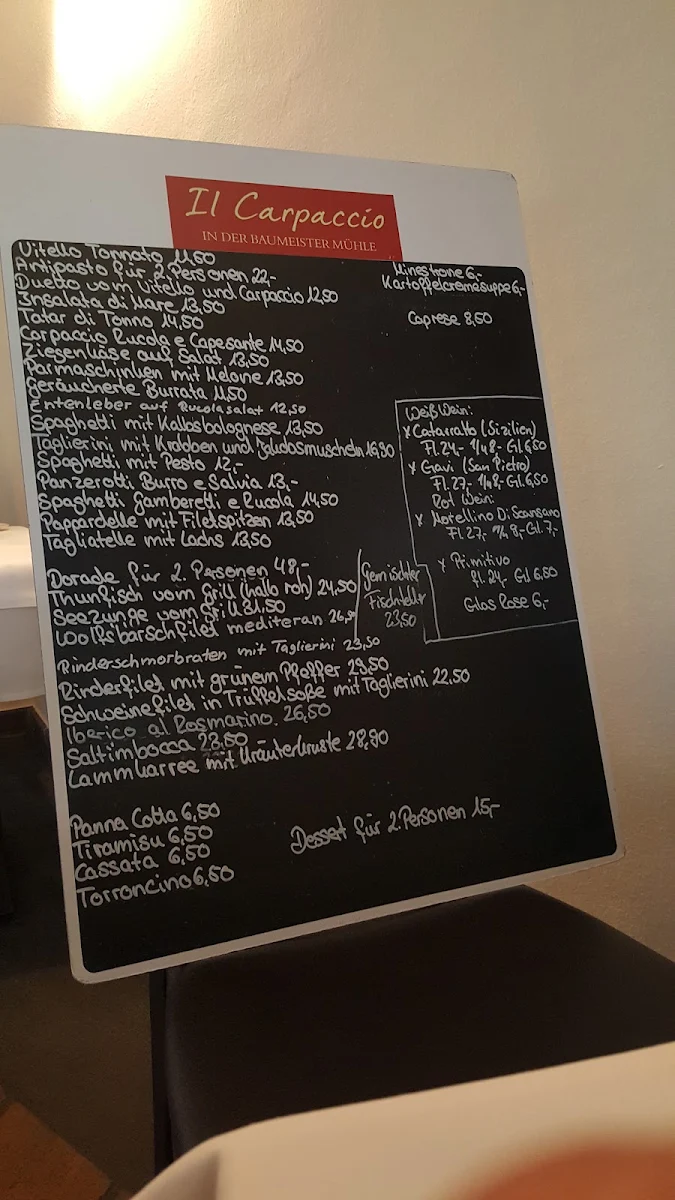 Il Carpaccio
IN DER BAUMEISTER MÜHLE
Vitello Tonnato 11,50
Antipasto für 2 Personen 22,-
Duetto vom Vitello und Carpaccio 12,50
Insalata di Mare 13,50
Tatar di Tonno 14,50
Carpaccio Rucola e Capesante 14,50
Ziegenkäse auf Salat 13,50
Parmaschinken mit Melone 13,50
Geräucherte Burrata 11,50
Entenleber auf Rucolasalat 12,50
Spaghetti mit Kalbsbolognese 13,50
Taglierini mit Krabben und Jakobsmuscheln 16,90
Spaghetti mit Pesto 12,-
Panzerotti Burro e Salvia 13,-
Spaghetti Gamberetti e Rucola 14,50
Pappardelle mit Filetspitzen 13,50
Tagliatelle mit Lachs 13,50
Minestrone 6,-
Kartoffelcremesuppe 6,-
Caprese 8,50
Weiß Wein:
x Catarratto (Sizilien)
Fl. 24,- 1/4 8,- Gl. 6,50
x Gavi (San Pietro)
Fl. 27,- 1/4 8,- Gl. 6,50
Rot Wein:
x Morellino Di Scansano
Fl. 27,- 1/4 8,- Gl. 7,-
x Primitivo
Fl. 24,- Gl 6.50
Glas Rose 6,-
Dorade für 2. Personen 48,-
Thunfisch vom Grill (halb roh) 24,50
Seezunge vom Grill 31.50
Wolfsbarschfilet mediteran
Gemischter
Fischteller
23,50
Rinderschmorbraten mit Taglierini 23,50
Rinderfilet mit grünem Pfeffer 29,50
Schweinefilet in Trüffelsoße mit Taglierini 22.50
Iberico al Rosmarino. 26,50
Saltimbocca 23,50
Lammkarree mit Kräuterkruste 28,90
Panna Cotta 6,50
Tiramisu 6,50
Cassata 6,50
Torroncino 6,50
Dessert für 2. Personen 15,-